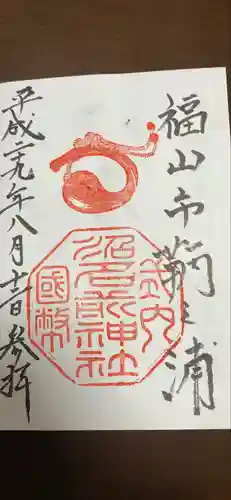 福山市鞆之浦
沼名前神社
國幣
平成二十九年八月十一日参拝